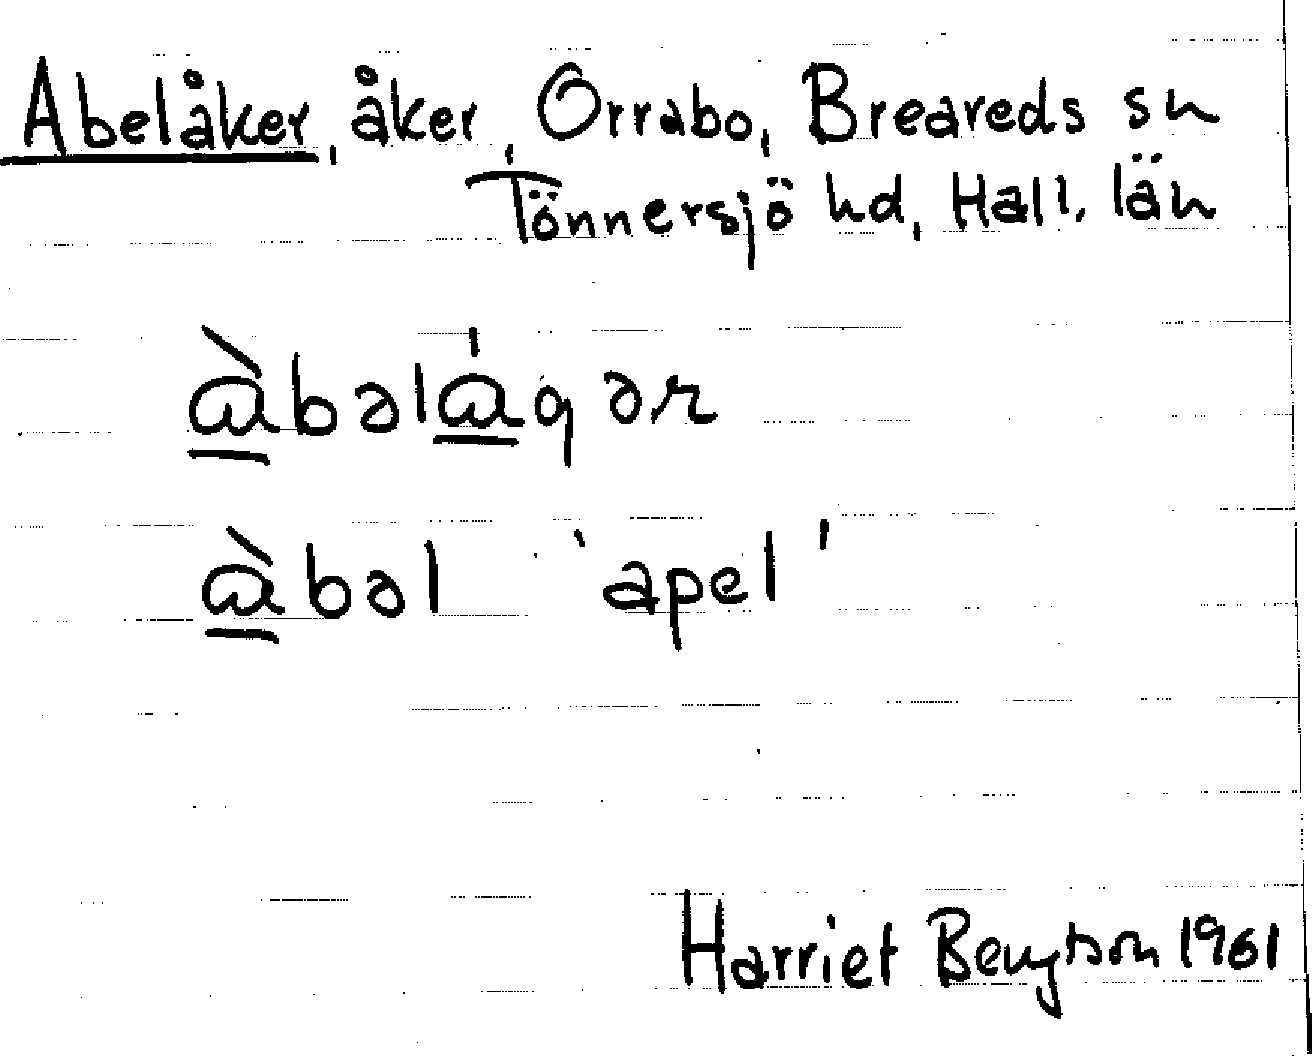 Abelåker, åker, Orrabo, Breareds sn
Tönnersjö hd, Hall. län
ɑ̀bəlɑ́qər
ɑ̀bəl 'apel'
Harriet Bengtson 1961